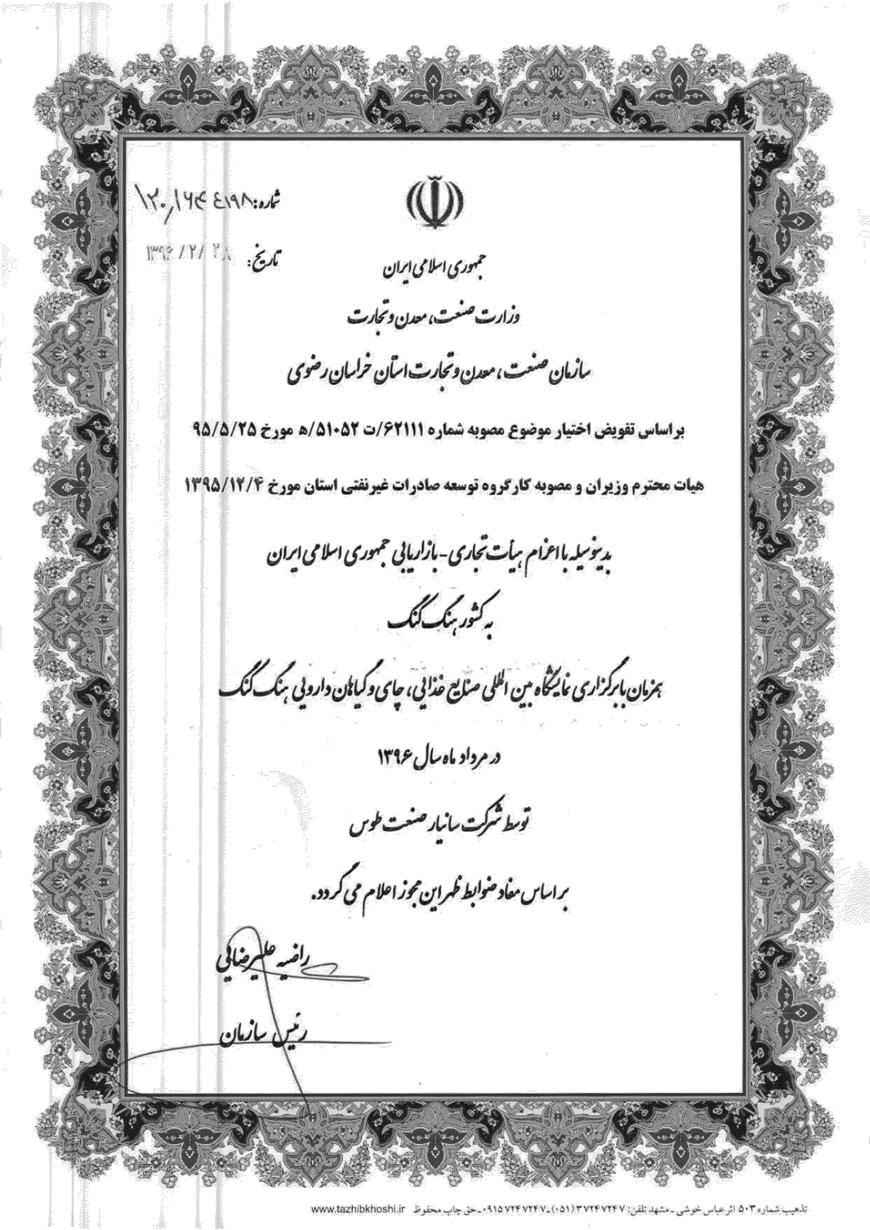 شماره: ۱۲۰/۱۶۴۴۱۹۸
تاریخ: ۱۳۹۶/۲/۲۸
جمهوری اسلامی ایران
وزارت صنعت، معدن و تجارت
سازمان صنعت، معدن و تجارت استان خراسان رضوی
بر اساس تفویض اختیار موضوع مصوبه شماره ۶۲۱۱۱/ت ۵۱۰۵۲/ه مورخ ۹۵/۵/۲۵
هیات محترم وزیران و مصوبه کارگروه توسعه صادرات غیرنفتی استان مورخ ۱۳۹۵/۱۲/۴
بدینوسیله با اعزام هیأت تجاری-بازاریابی جمهوری اسلامی ایران
به کشور هنگ کنگ
همزمان با برگزاری نمایشگاه بین المللی صنایع غذایی، چای و گیاهان دارویی هنگ کنگ
در مرداد ماه سال ۱۳۹۶
توسط شرکت سانیار صنعت طوس
بر اساس مفاد ضوابط ظهر این مجوز اعلام می گردد.
راضیه علیرضائی
رئیس سازمان
تذهیب شماره ۵۰۳ اثر عباس خوشی - مشهد تلفن: ۳۷۲۴۷۲۴۷ (۰۵۱) - ۰۹۱۵۷۲۴۷۲۴۷ - حق چاپ محفوظ www.tazhibkhoshi.ir